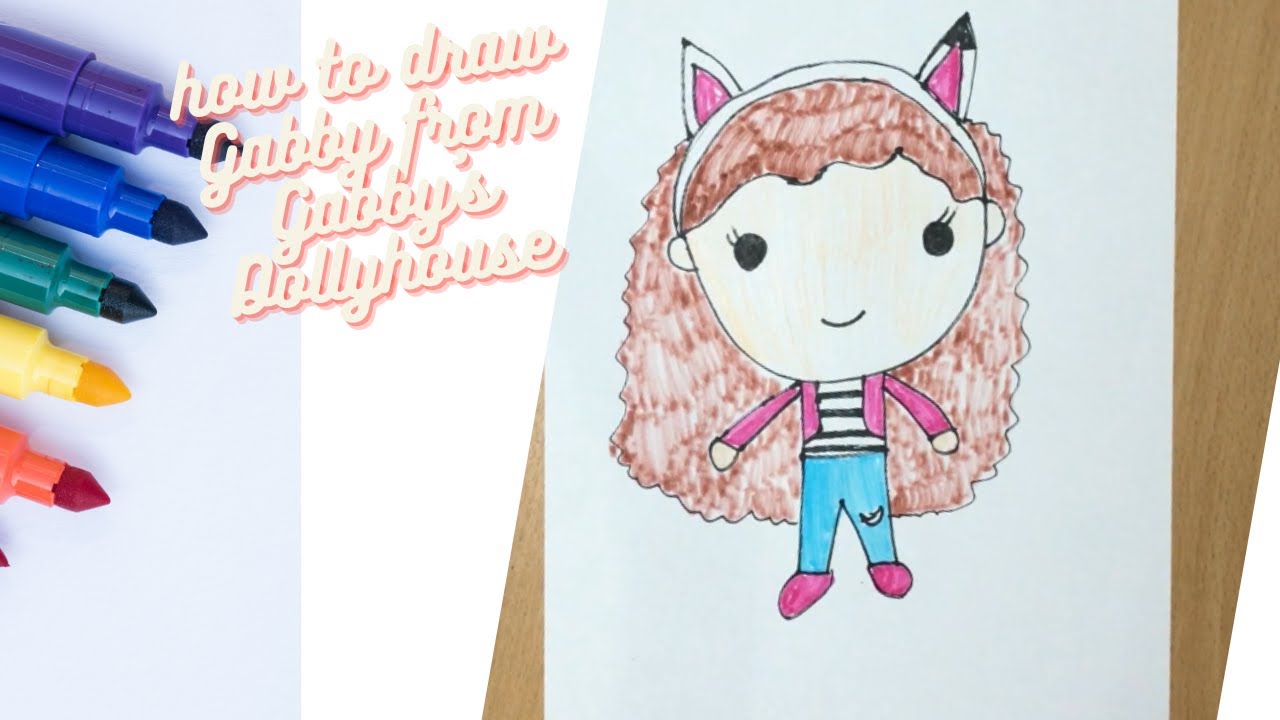 how to draw
Gabby from
Gabby's
Dollyhouse